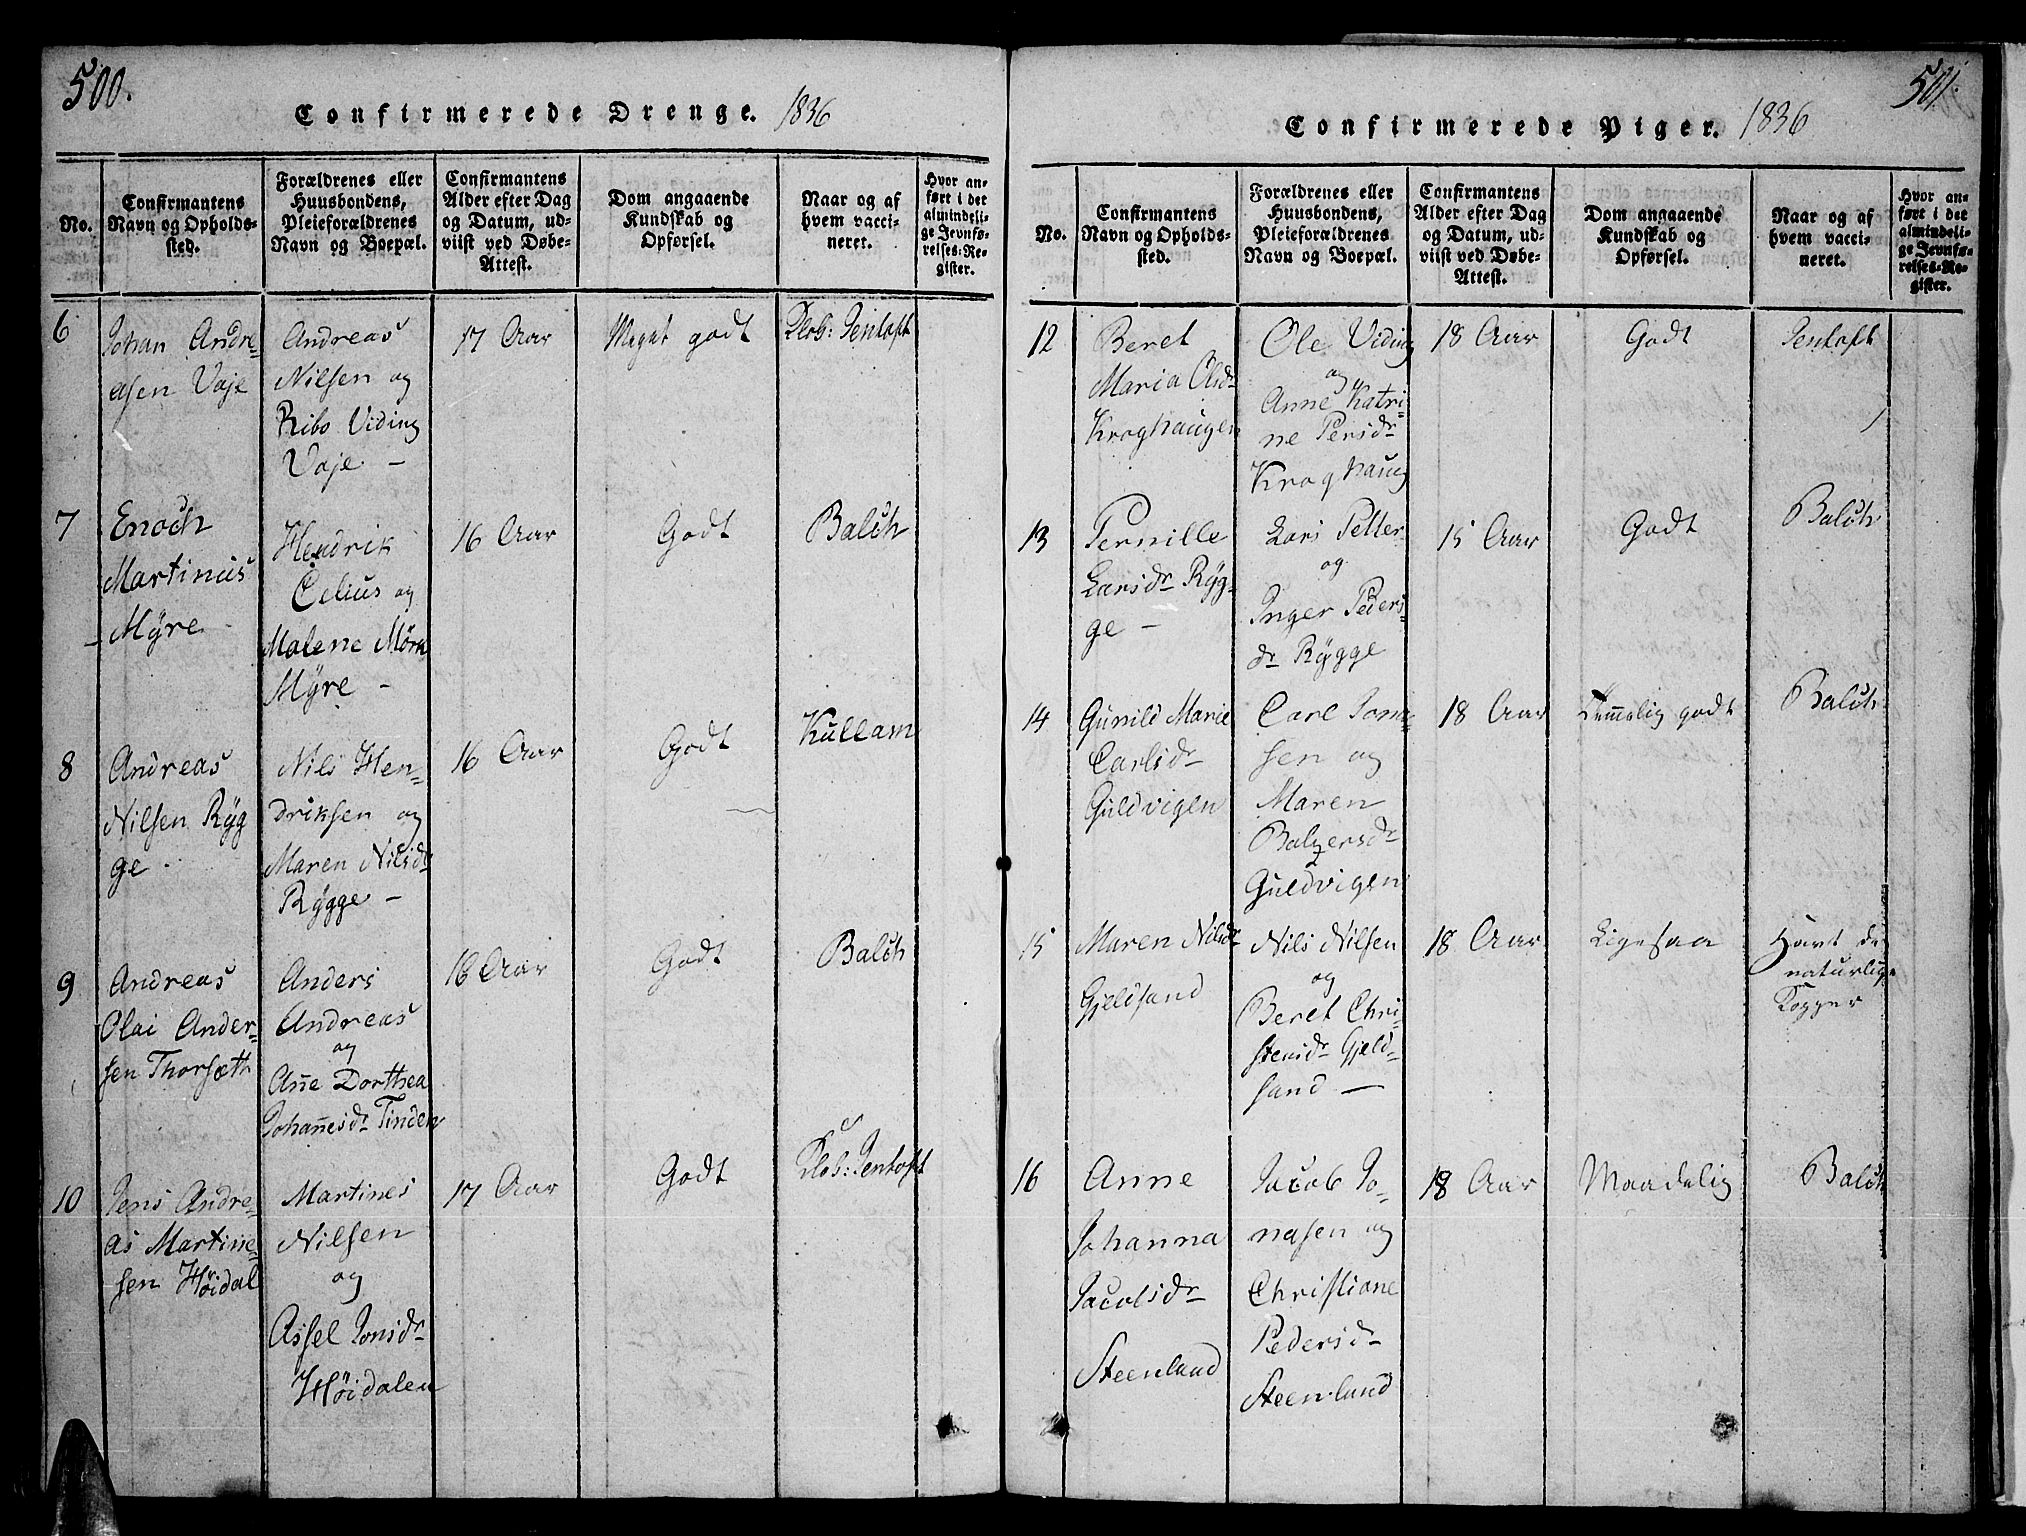 500.
Confirmerede Drenge. 1836
No.
Confirmantens
Navn og Opholds-
sted.
Forældrenes eller
Huusbondens,
Pleieforældrenes
Navn og Boepæl.
Confirmantens
Alder efter Dag
og Datum, ud-
viist ved Døbe-
Attest.
Dom angaaende
Kundskab og
Opførsel.
Naar og af
hvem vacci-
neret.
Hvor an-
ført i det
almindeli-
ge Jevnfø-
relses-Re-
gister.
6
Johan Andre-
asen Vaje
Andreas
Nilsen og
Ribo Viding
Vaje -
17 Aar
Meget godt
Klok: Jentoft
7
Enoch
Martinus
Myre
Hendrik
Celius og
Malene Mørk
Myre -
16 Aar
Godt
Balch
8
Andreas
Nilsen Ryg
ge.
Nils Hen-
driksen og
Maren Nilsdr
Rygge -
16 Aar
Godt
Kullam
9
Andreas
Olai Ander-
sen Thorsæth
Anders
Andreas
og
Añe Dorthea
Johañesdr Tinden
16 Aar
Godt
Balch
10
Jens Andre-
as Martine-
sen Høidal
Martines
Nilsen
og
Assel Jonsdr
Høidalen
17 Aar
Godt
Klok: Jentoft
501.
Confirmerede Piger. 1836
No.
Confirmantens
Navn og Opholds-
sted.
Forældrenes eller
Huusbondens,
Pleieforældrenes
Navn og Boepæl.
Confirmantens
Alder efter Dag
og Datum, ud-
viist ved Døbe-
Attest.
Dom angaaende
Kundskab og
Opførsel.
Naar og af
hvem vacci-
neret.
Hvor an-
ført i det
almindeli-
ge Jevnfø-
relses-Re-
gister.
12
Beret
Maria Olsdr
Kroghaugen
Ole Viding
og
Anne Katri-
ne Persdr
Kroghaug
18 Aar
Godt
Jentoft
13
Pernille
Larsdr Ryg-
ge -
Lars Petter
og
Inger Peders-
dr Rygge
15 Aar
Godt
Balch
14
Gunild Marie
Carlsdr
Guldvigen
Carl Jona-
sen og
Maren
Balzersdr
Guldvigen
18 Aar
Temmelig godt
Balch
15
Maren Nilsdr
Gjeldsand
Nils Nilsen
og
Beret Chri-
stensdr Gjeld-
sand -
18 Aar
Ligesaa
Havt de
naturlige
Kopper
16
Anne
Johanna
Jacobsdr
Steenland
Jacob Jo-
nasen og
Christiane
Pedersdr
Steenland
18 Aar
Maadelig
Balch